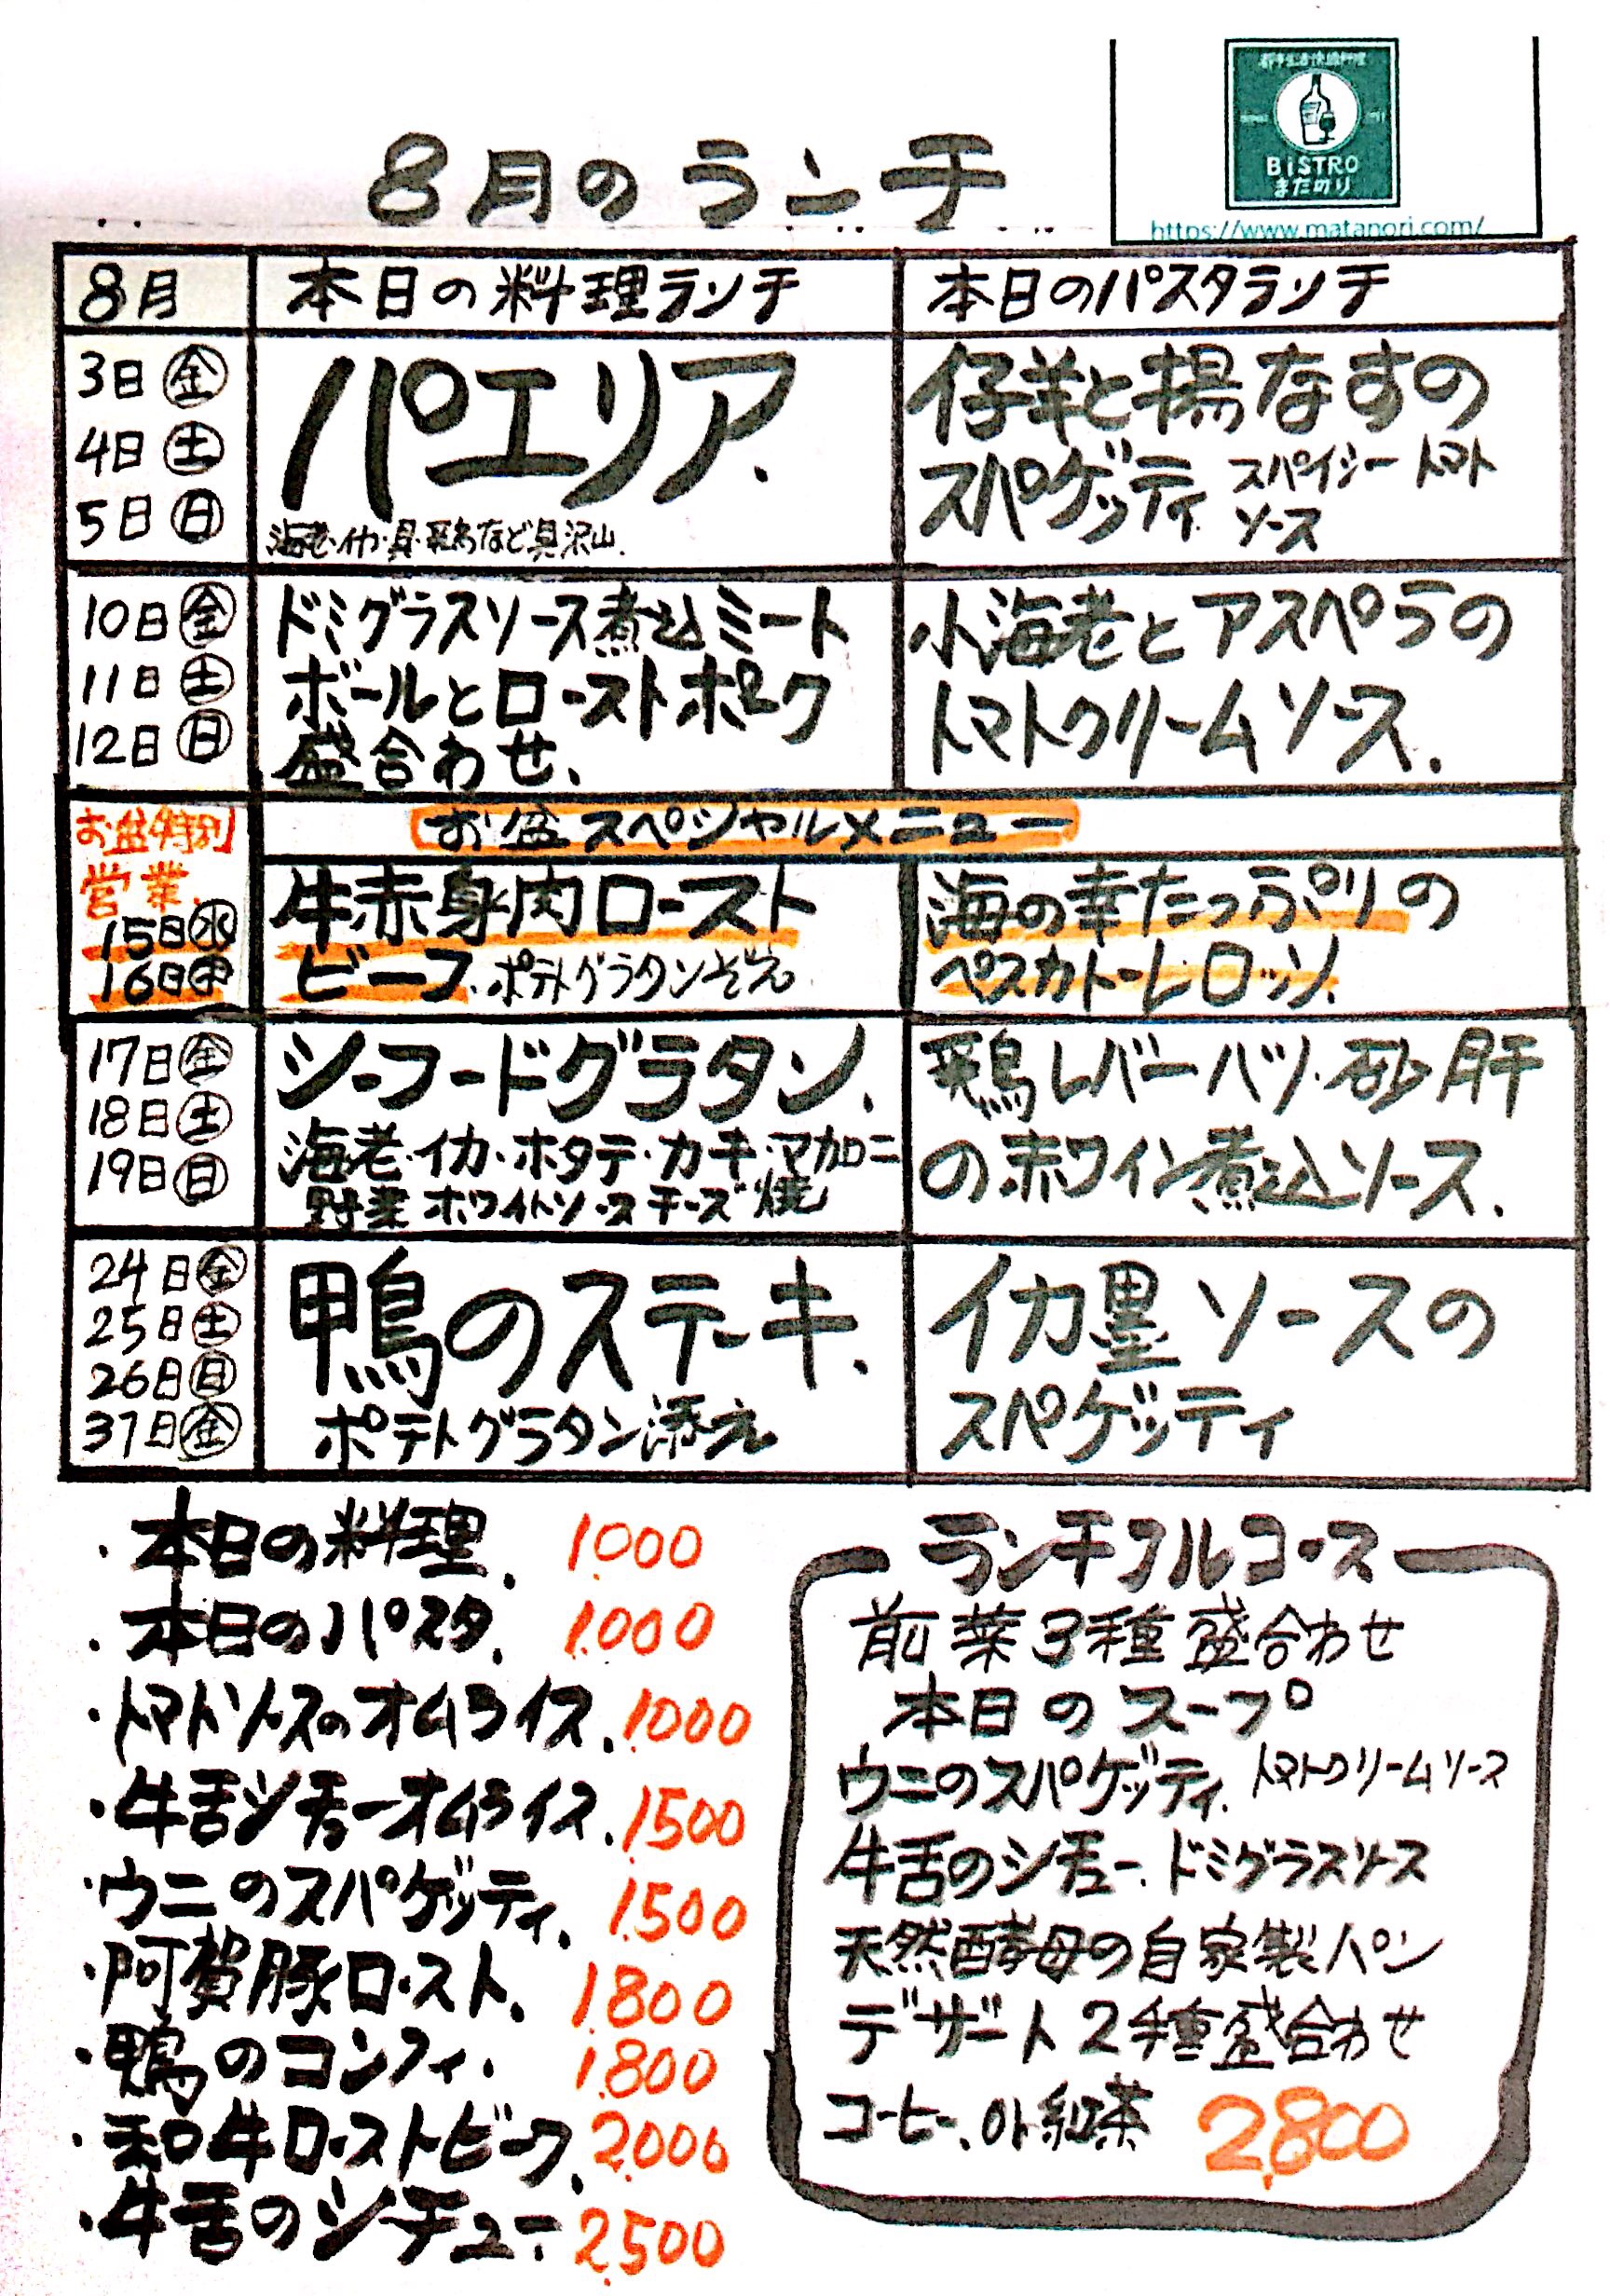 BiSTRO
またのり
https://www.matanori.com/
8月のランチ
8月
本日の料理ランチ
本日のパスタランチ
3日㊎
4日㊏
5日㊐
パエリア.
海老・イカ・貝・鶏など具沢山.
仔羊と揚なすの
スパゲッティ スパイシートマト
ソース
10日㊎
11日㊏
12日㊐
ドミグラスソース煮込ミート
ボールとローストポーク
盛合わせ、
小海老とアスペラの
トマトクリームソース.
お盆特別
営業.
15日㊌
16日㊍
お盆スペシャルメニュー
牛赤身肉ロースト
ビーフ.ポテトグラタンぞえ
海の幸たっぷりの
ペスカトーレ・ロッソ.
17日㊎
18日㊏
19日㊐
シーフードグラタン、
海老・イカ・ホタテ・カキ・マカロニ
野菜 ホワイトソースチーズ焼
鶏レバー・ハツ・砂肝
の赤ワイン煮込ソース.
24日㊎
25日㊏
26日㊐
31日㊎
鴨のステーキ、
ポテトグラタン添え
イカ墨ソースの
スパゲッティ
・本日の料理. 1.000
・本日のパスタ. 1.000
・トマトソースのオムライス. 1.000
・牛舌シチューオムライス. 1.500
・ウニのスパゲッティ. 1.500
・阿賀豚ロースト. 1.800
・鴨のコンフィ. 1.800
・和牛ローストビーフ. 2.000
・牛舌のシチュー 2.500
ランチフルコース
前菜3種盛合わせ
本日のスープ
ウニのスパゲッティ.トマトクリームソース
牛舌のシチュー.ドミグラスソース
天然酵母の自家製パン
デザート2種盛合わせ
コーヒー.or紅茶 2,800